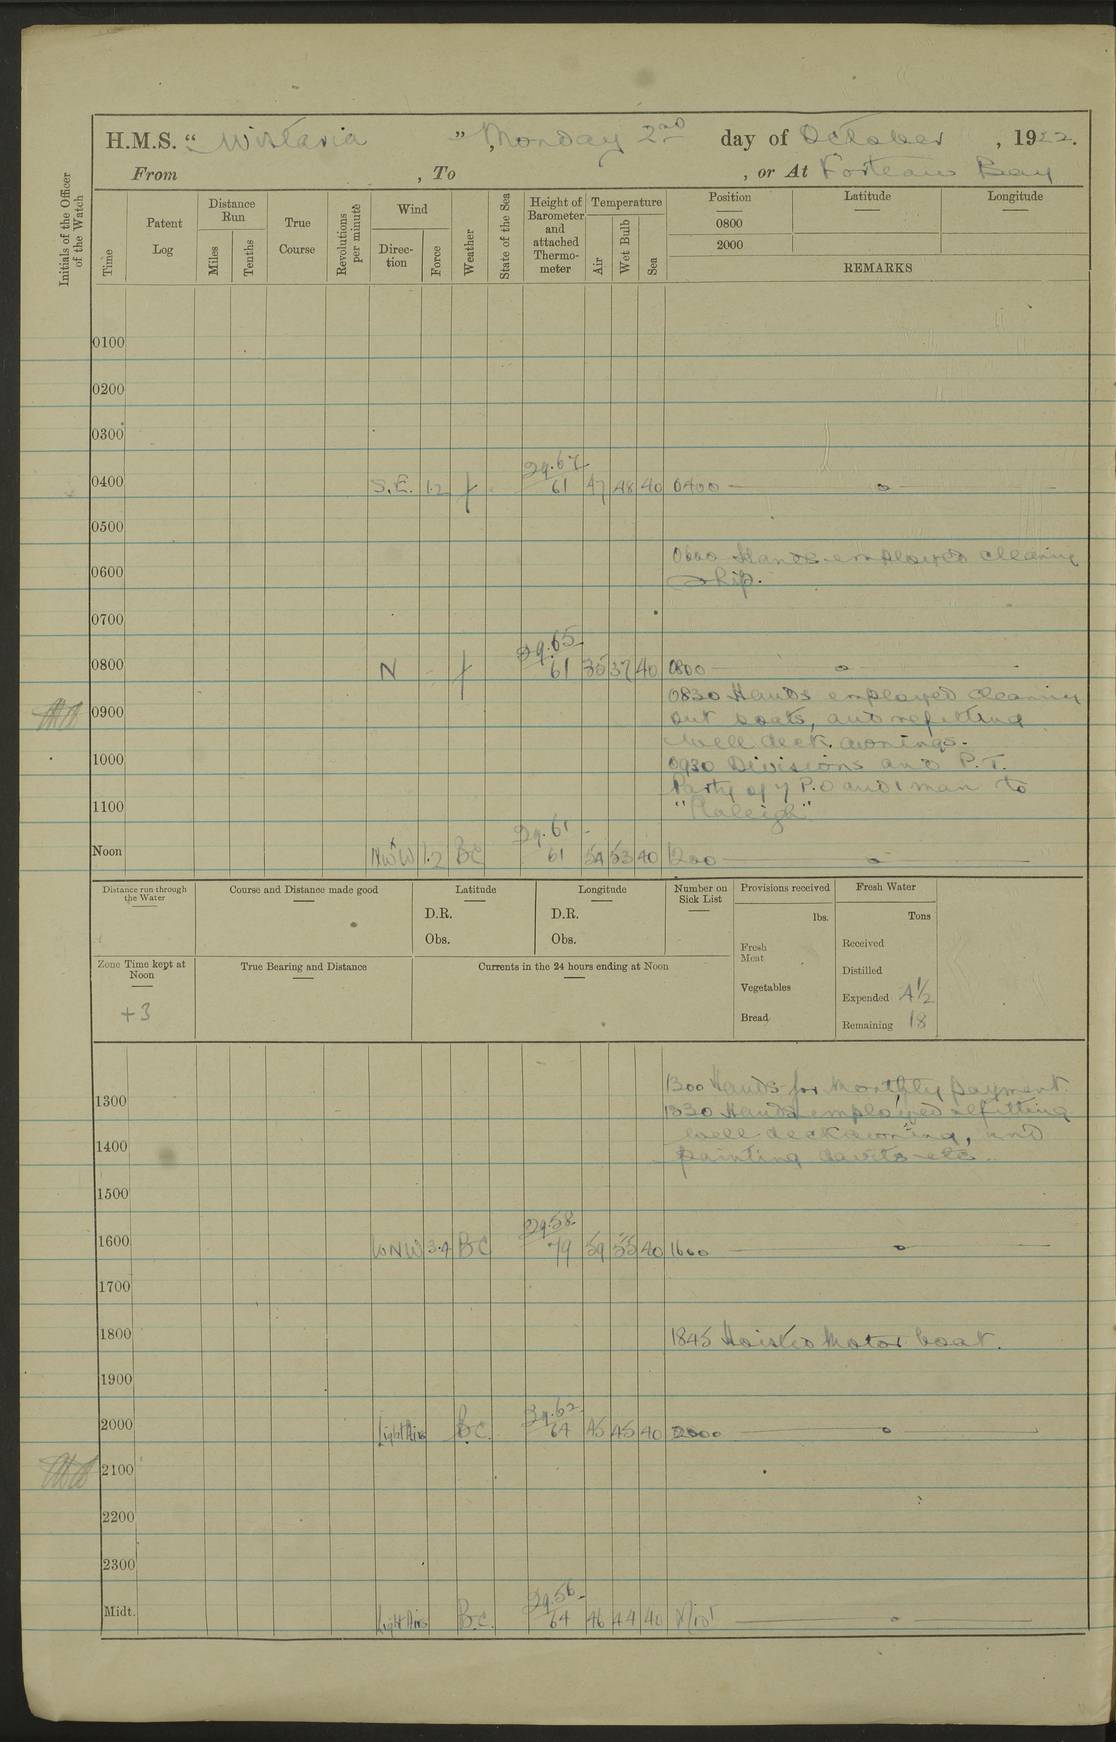 H.M.S. “ Wistaria ”, Monday 2nd day of October, 1922.
From , To , or At Forteau Bay
Initials of the Officer of the Watch
Time
Patent Log
Distance Run
Miles
Tenths
True Course
Revolutions per minute
Wind
Direction
Force
Weather
State of the Sea
Height of Barometer and attached Thermometer
Temperature
Air
Wet Bulb
Sea
Position
0800
2000
Latitude
Longitude
REMARKS
0100
0200
0300
0400 S.E. 1.2 f 29.67 61 47 48 40 0400
0500
0600 Hands employed cleaning
0600 ship.
0700
0800 N - f 29.65 61 35 37 40 0800
0830 Hands employed cleaning
0900 out boats, and refitting
well deck awnings.
1000 0930 Divisions and P.T.
Party of 7 P.O and 1 man to
1100 "Raleigh"
Noon NW x W 1.2 BC 29.61 61 54 53 40 1200
Distance run through the Water
Course and Distance made good
Latitude
D.R.
Obs.
Longitude
D.R.
Obs.
Number on Sick List
Provisions received
lbs.
Fresh Meat
Vegetables
Bread
Fresh Water
Tons
Received
Distilled
Expended 4½
Remaining 18
Zone Time kept at Noon
+3
True Bearing and Distance
Currents in the 24 hours ending at Noon
1300 Hands for Monthly payment.
1300 1330 Hands employed refitting
well deck awning, and
1400 painting davits etc.
1500
1600 WNW 3.4 BC 29.58 79 59 55 40 1600
1700
1800 1845 Hoisted Motor boat.
1900
2000 Light Airs B.C. 29.62 64 45 45 40 2000
2100
2200
2300
Midt. Light Airs B.C. 29.56 64 46 44 40 Mid't